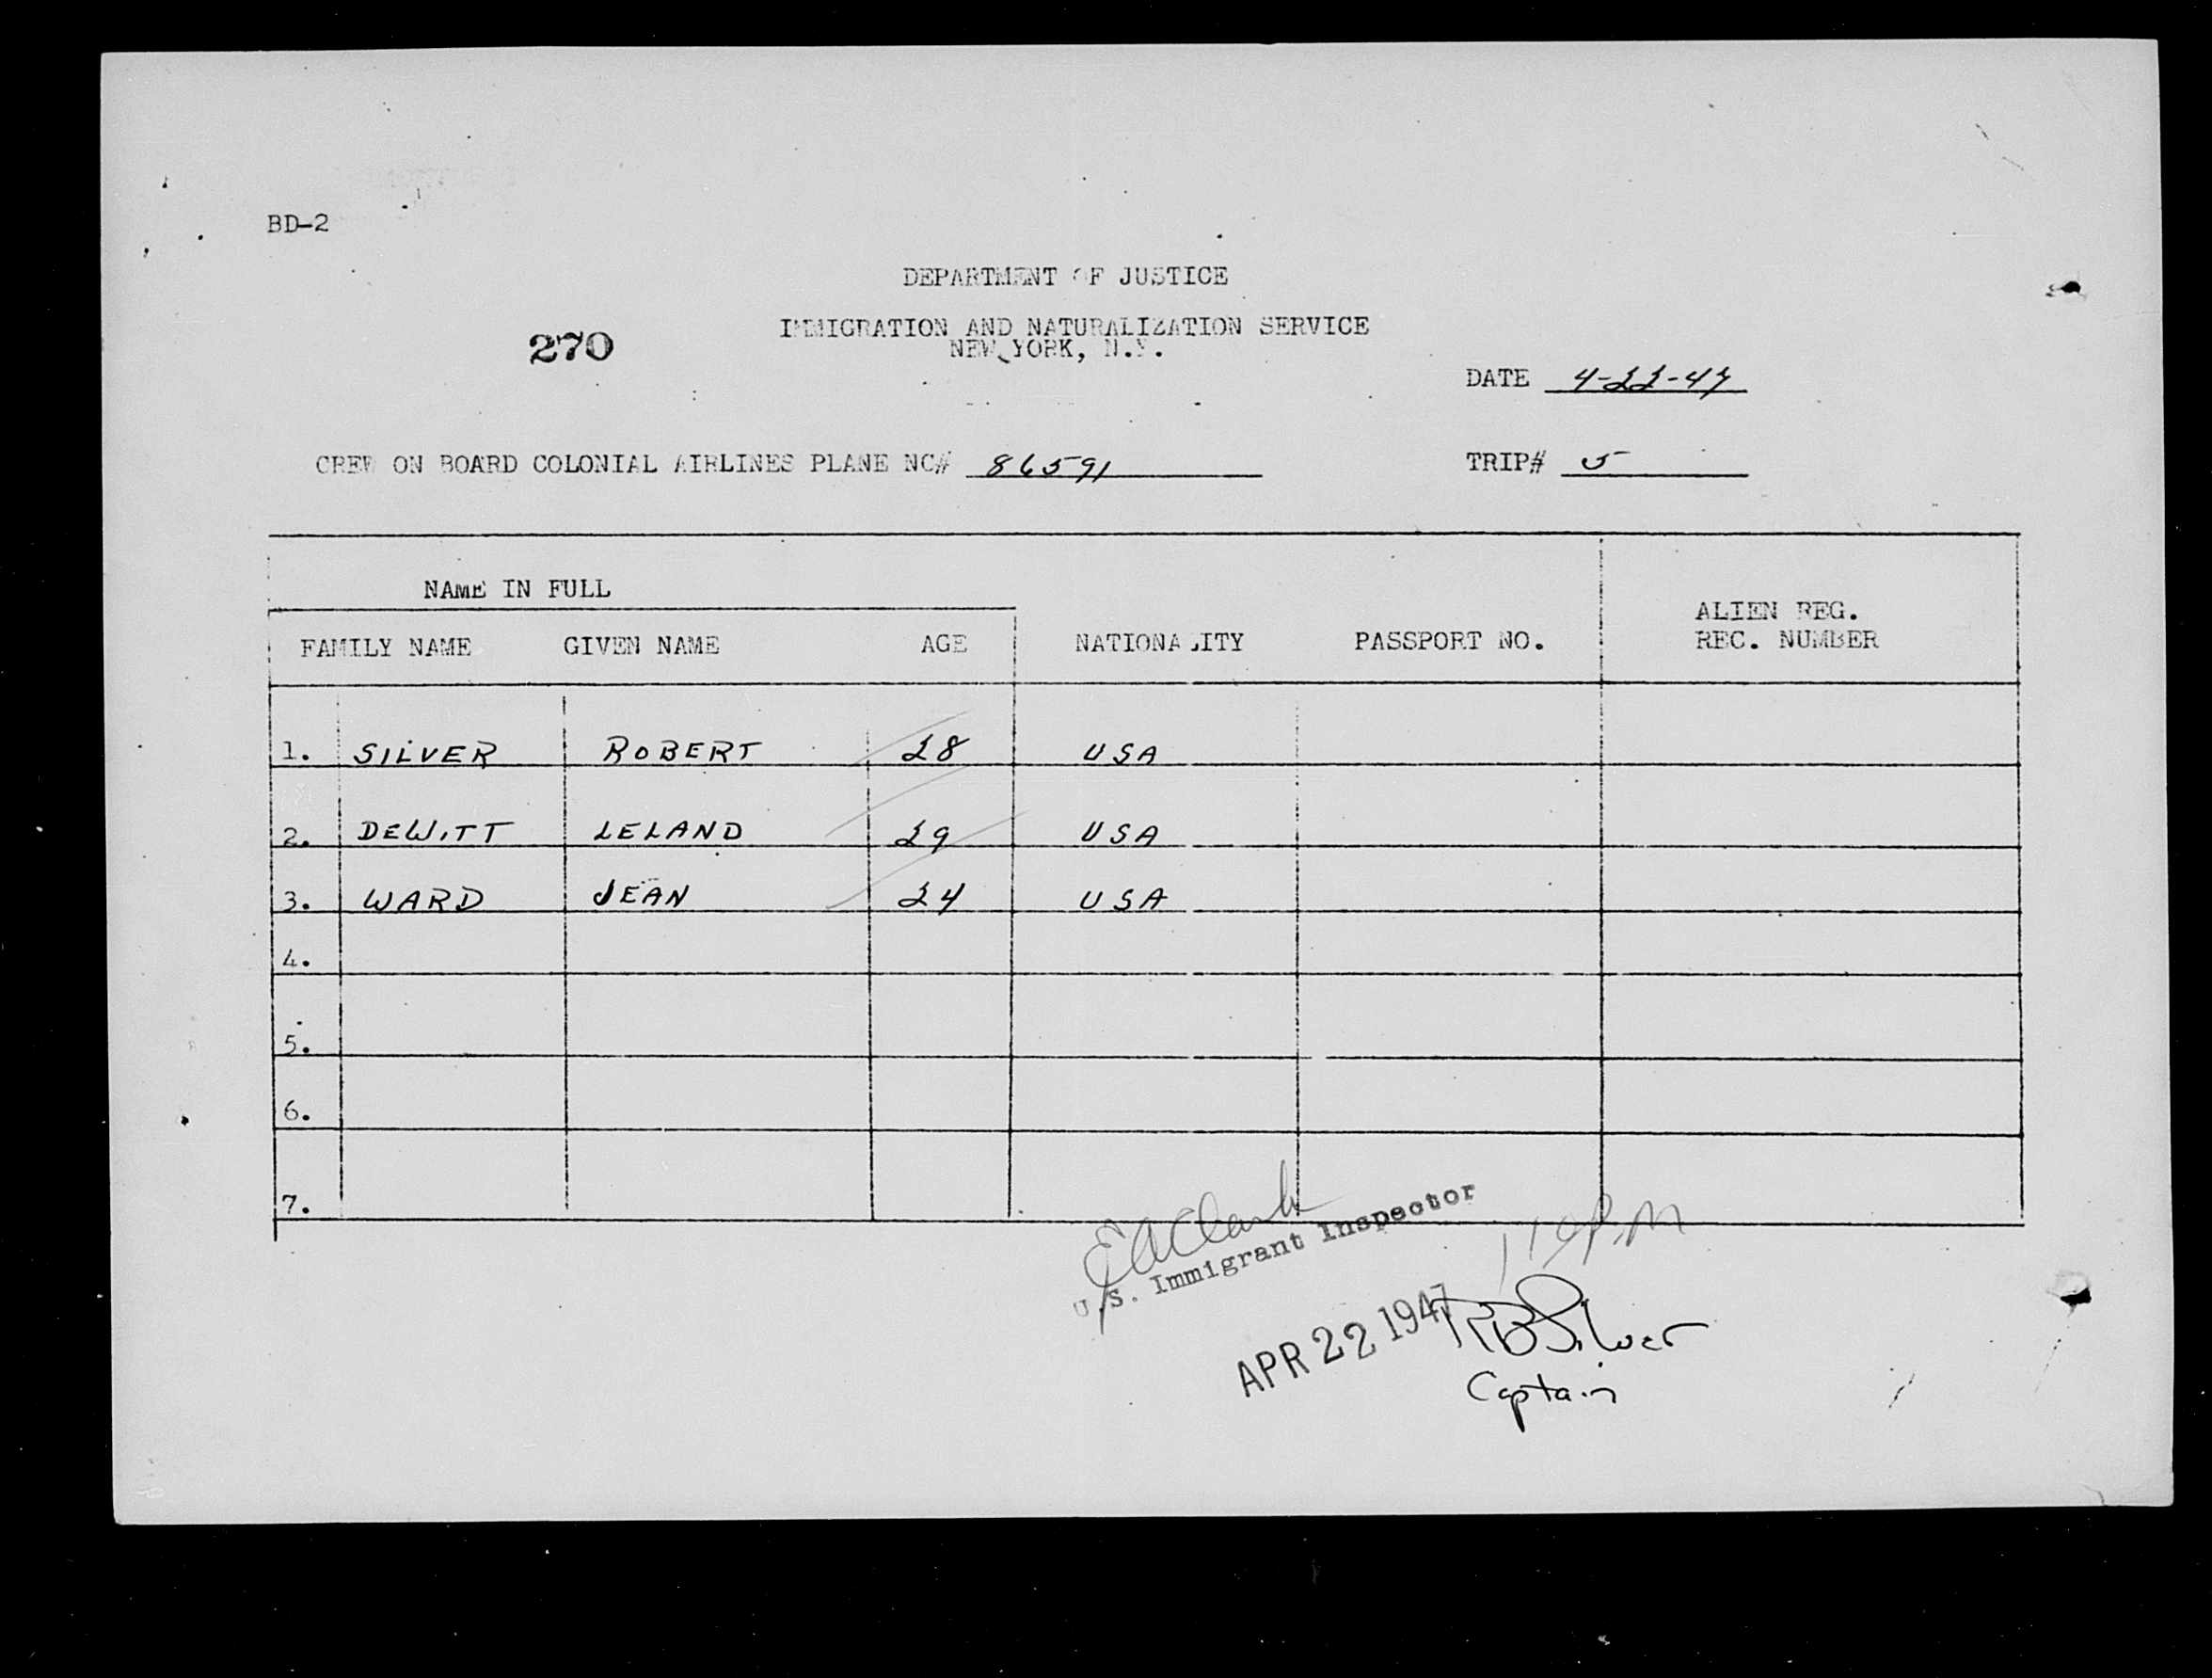 BD-2
DEPARTMENT OF JUSTICE
IMMIGRATION AND NATURALIZATION SERVICE
270
NEW YORK, N.Y.
DATE 4-22-47
CREW ON BOARD COLONIAL AIRLINES PLANE NC# 86591 TRIP# 5
NAME IN FULL
FAMILY NAME GIVEN NAME AGE NATIONALITY PASSPORT NO. ALIEN REG. REC. NUMBER
1. SILVER ROBERT 28 USA
2. DEWITT LELAND 29 USA
3. WARD JEAN 24 USA
4.
5.
6.
7.
E A Clark
U.S. Immigrant Inspector
APR 22 1947
RB Silver
Captain